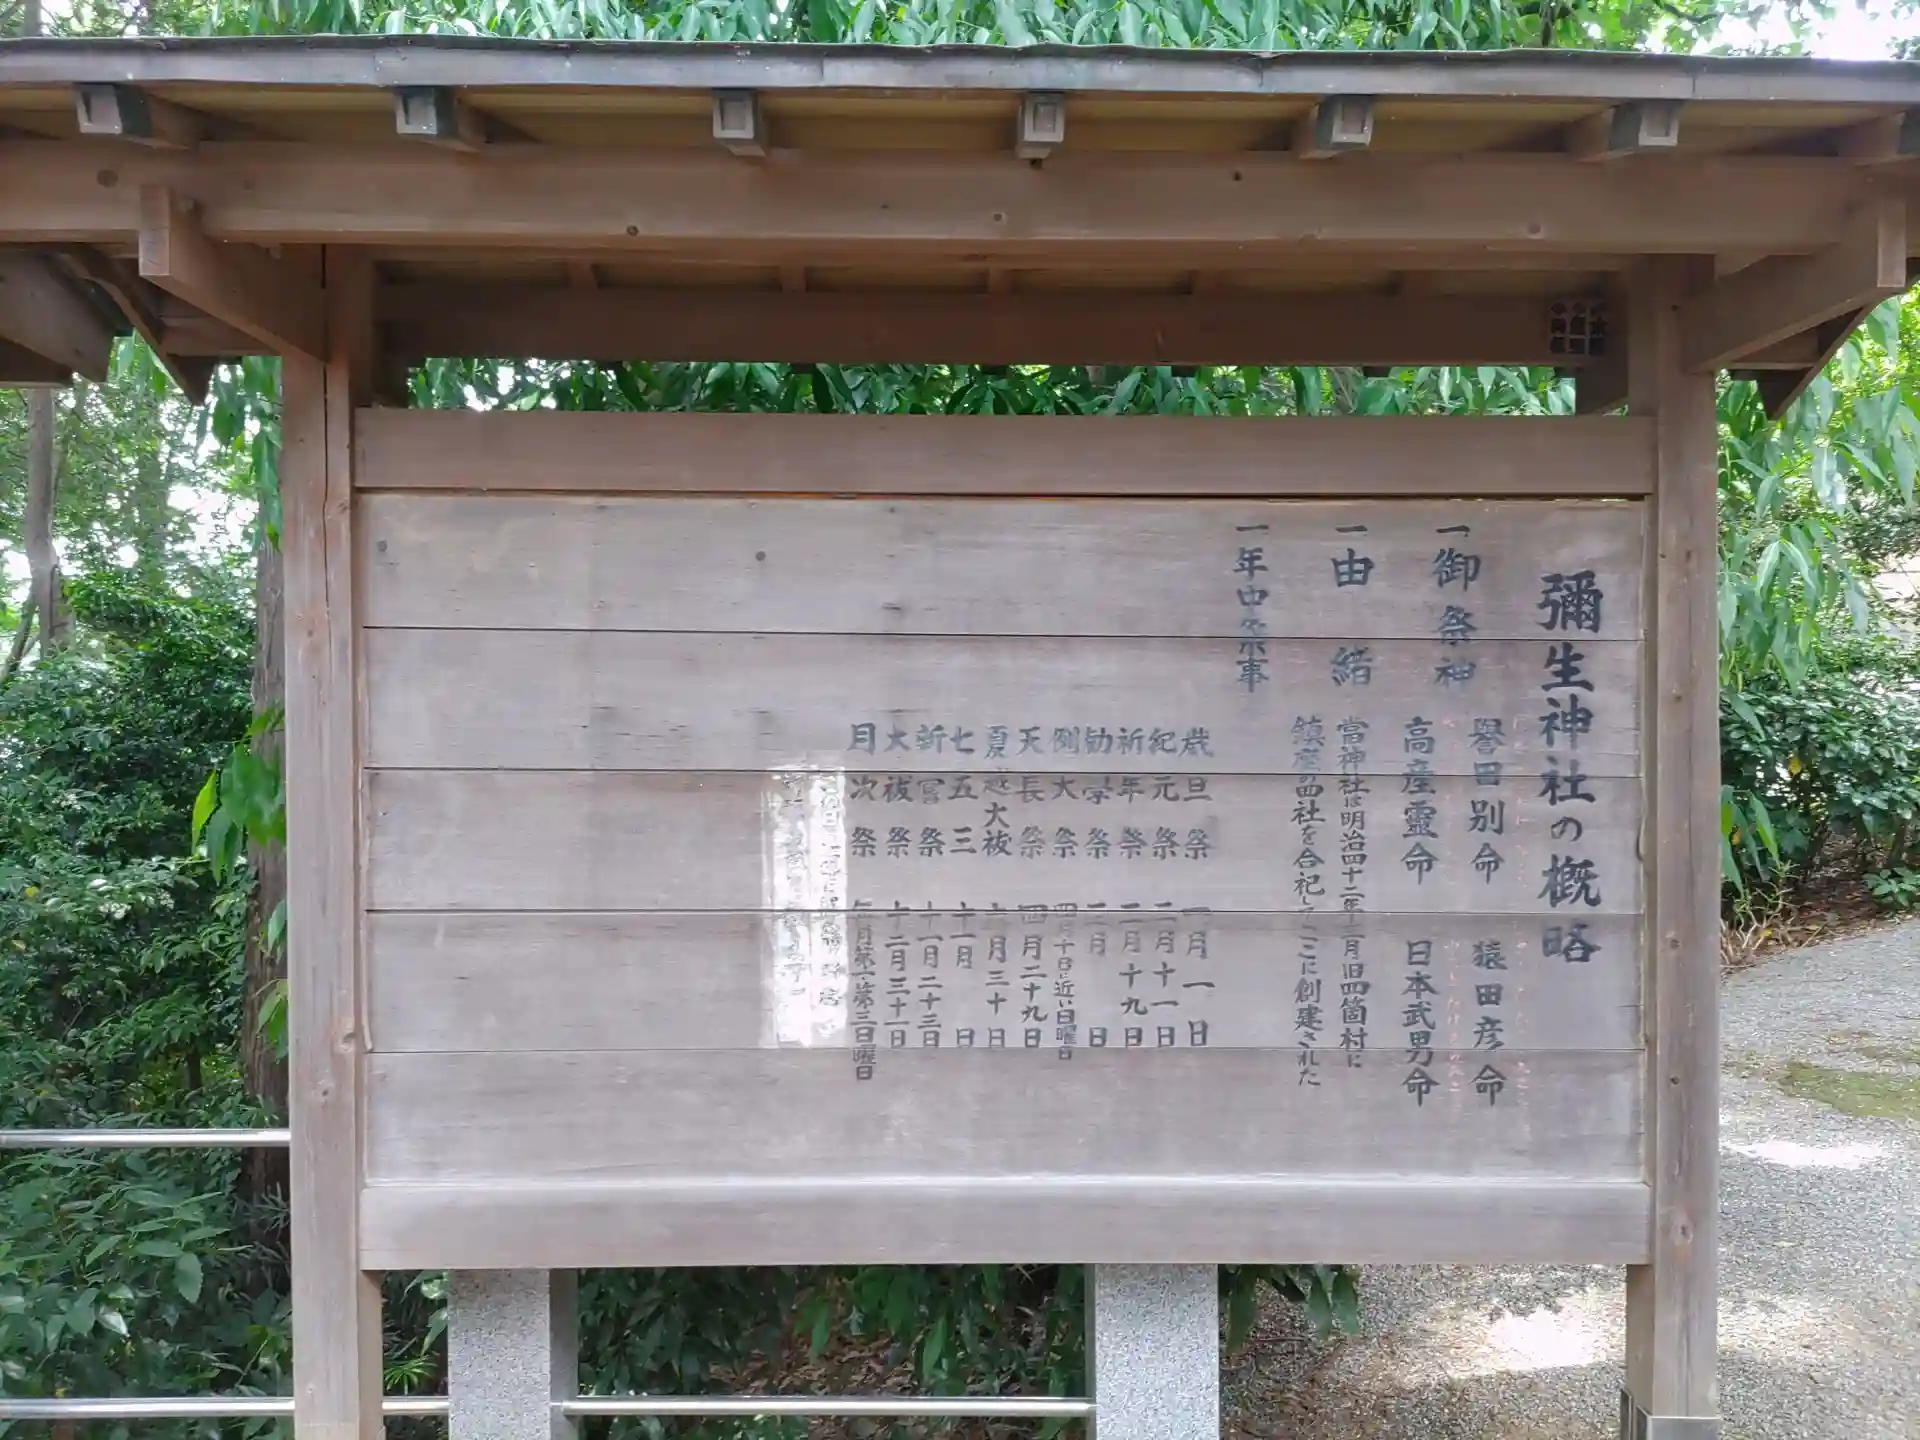 彌生神社の概略
一御祭神
譽田別命 猿田彦命
高産靈命 日本武男命
一由緒
當神社は明治四十二年十二月旧四箇村に
鎮座の四社を合祀してここに創建された
一年中祭事
歳旦祭 一月一日
紀元祭 二月十一日
祈年祭 二月十九日
勧学祭 三月 日
例大祭 四月十日に近い日曜日
天長祭 四月二十九日
夏越大祓 六月三十日
七五三 十一月 日
新嘗祭 十一月二十三日
大祓祭 十二月三十一日
月次祭 毎月第一、第三日曜日